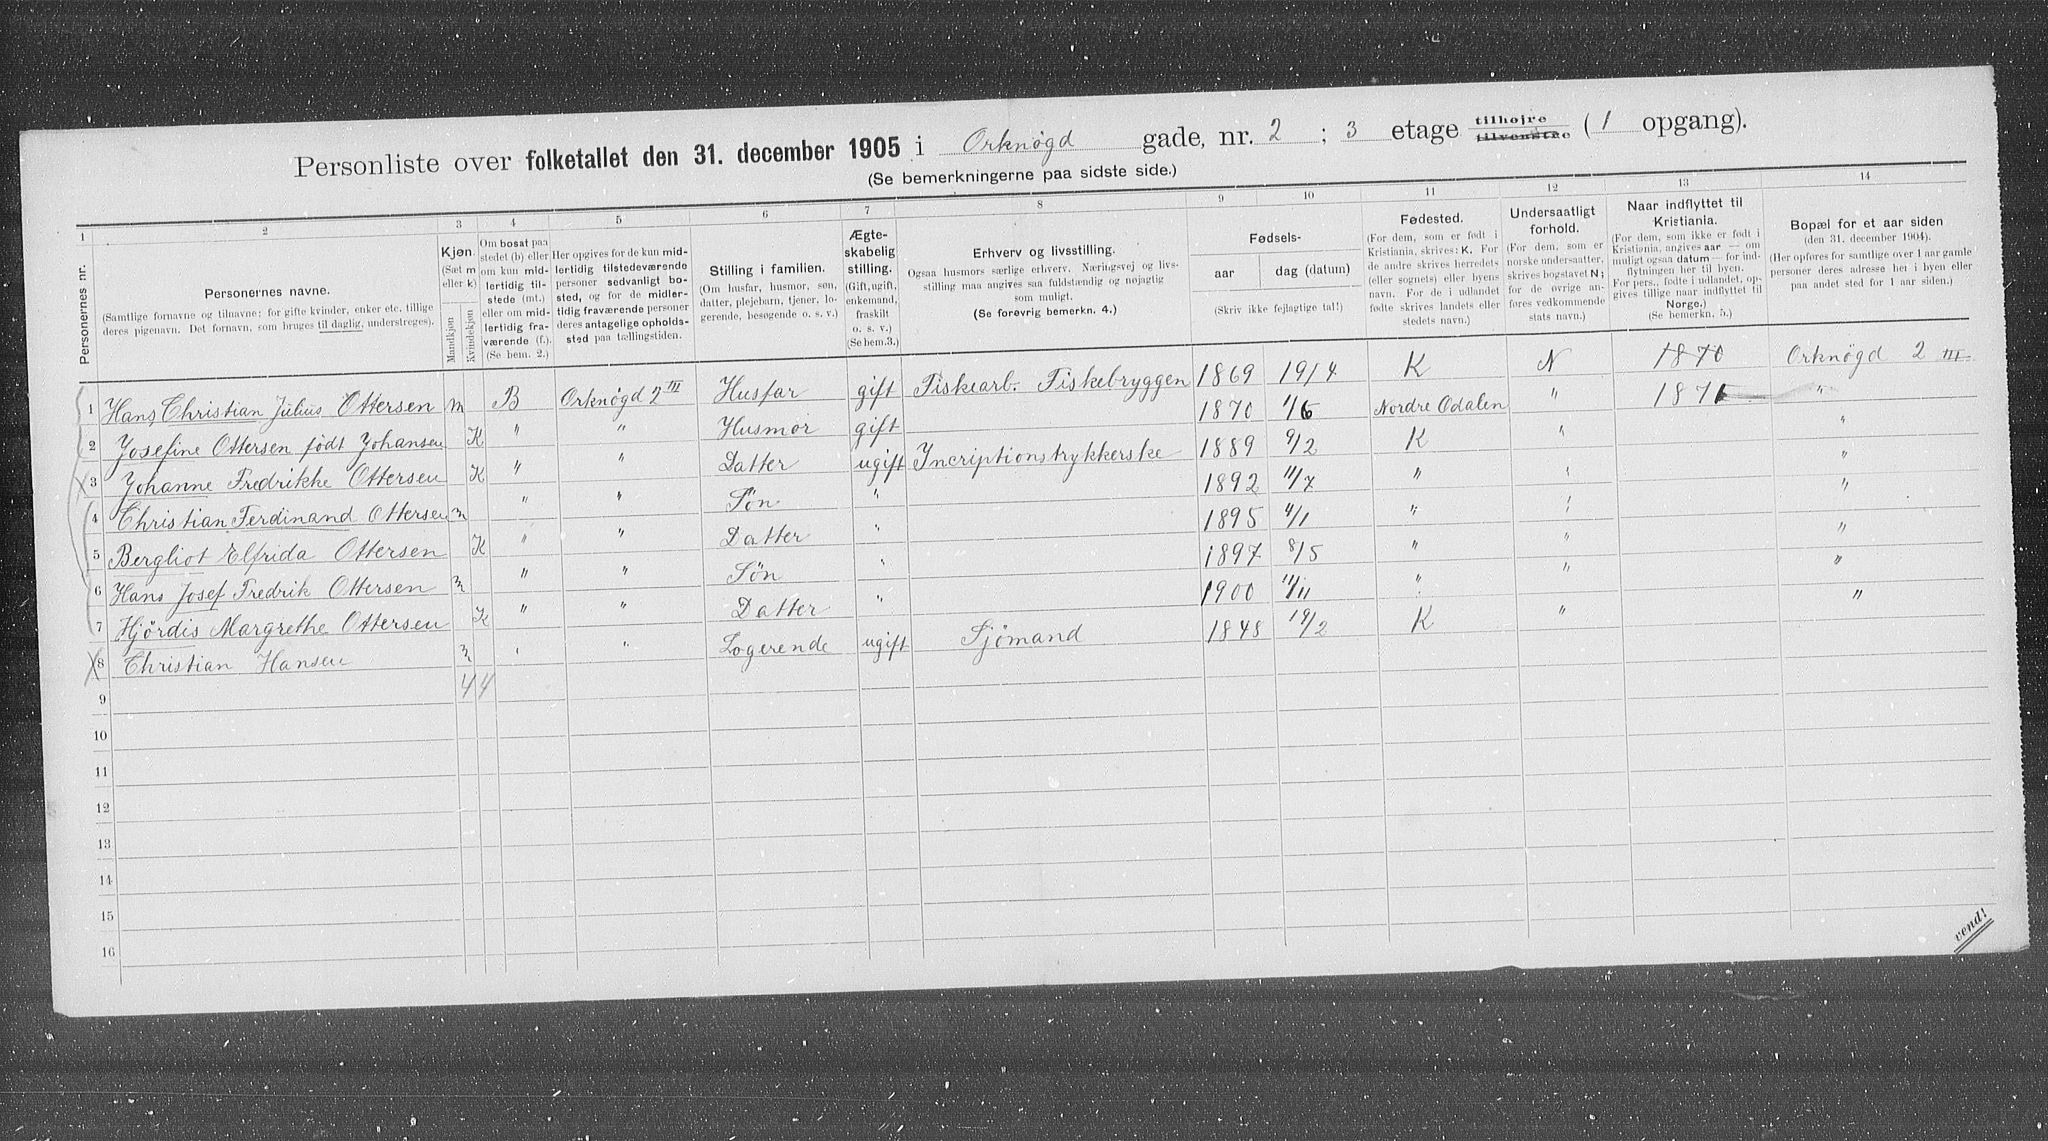 Personliste over folketallet den 31. december 1905 i Orknögd gade, nr. 2 ; 3 etage tilhøjre tilvenstre ( 1 opgang).
(Se bemerkningerne paa sidste side.)
1 2 3 4 5 6 7 8 9 10 11 12 13 14
Personernes nr.
Personernes navne.
(Samtlige fornavne og tilnavne; for gifte kvinder, enker etc. tillige
deres pigenavn. Det fornavn, som bruges til daglig, understreges).
Kjøn.
(Sæt m
eller k)
Mandkjøn
Kvindekjøn
Om bosat paa
stedet (b) eller
om kun mid-
lertidig til-
stede (mt.)
eller om mid-
lertidig fra-
værende (f.).
(Se bem. 2.)
Her opgives for de kun mid-
lertidig tilstedeværende
personer sedvanligt bo-
sted, og for de midler-
tidig fraværende personer
deres antagelige opholds-
sted paa tællingstiden.
Stilling i familien.
(Om husfar, husmor, søn,
datter, plejebarn, tjener, lo-
gerende, besøgende o. s. v.)
Ægte-
skabelig
stilling.
(Gift, ugift,
enkemand,
fraskilt
o. s. v.)
(Se bem.3.)
Erhverv og livsstilling.
Ogsaa husmors særlige erhverv. Næringsvej og livs-
stilling maa angives saa fuldstændig og nøjagtig
som muligt.
(Se forøvrig bemerkn. 4.)
Fødsels-
aar
dag (datum)
(Skriv ikke fejlagtige tal!)
Fødested.
(For dem, som er født i
Kristiania, skrives: K. For
de andre skrives herredets
(eller sognets) eller byens
navn. For de i udlandet
fødte skrives landets eller
stedets navn.)
Undersaatligt
forhold.
(For dem, som er
norske undersaatter,
skrives bogstavet N;
for de øvrige an-
føres vedkommende
stats navn.)
Naar indflyttet til
Kristiania.
(For dem, som ikke er født i
Kristiania, angives aar — om
muligt ogsaa datum — for ind-
flytningen her til byen.
For pers., fødte i udlandet, op-
gives tillige naar indflyttet til
Norge.)
(Se bemerkn. 5.)
Bopæl for et aar siden
(den 31. december 1904).
(Her opføres for samtlige over 1 aar gamle
personer deres adresse her i byen eller
paa andet sted for 1 aar siden.)
1 Hans Christian Julius Ottersen m B Orknögd 2 III Husfar gift Fiskearb. Fiskebryggen 1869 19/4 K N 1870 Orknögd 2 III
2 Josefine Ottersen födt Johansen K " " Husmor gift 1870 1/6 Nordre Odalen " 1871 "
3 Johanne Fredrikke Ottersen K " " Datter ugift Incriptionstrykkerske 1889 9/2 K " "
4 Christian Ferdinand Ottersen m " " Sön " 1892 11/7 " " "
5 Bergliot Elfrida Ottersen K " " Datter " 1895 4/1 " " "
6 Hans Josef Fredrik Ottersen m " " Sön " 1897 8/5 " " "
7 Hjördis Margrethe Ottersen K " " Datter " 1900 11/11 " " "
8 Christian Hansen m " " Logerende ugift Sjömand 1848 19/2 K " "
9 4 4
10
11
12
13
14
15
16
vend!